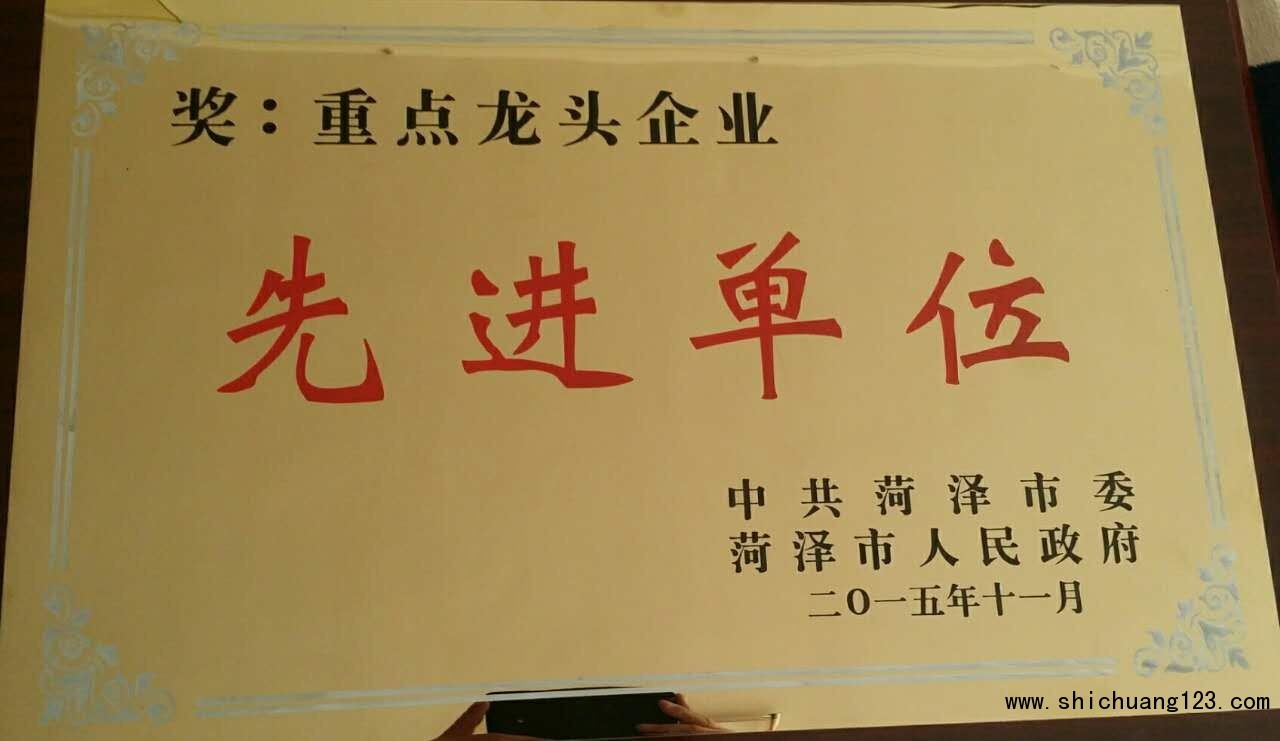 奖：重点龙头企业
先进单位
中共菏泽市委
菏泽市人民政府
二O一五年十一月
www.shichuang123.com